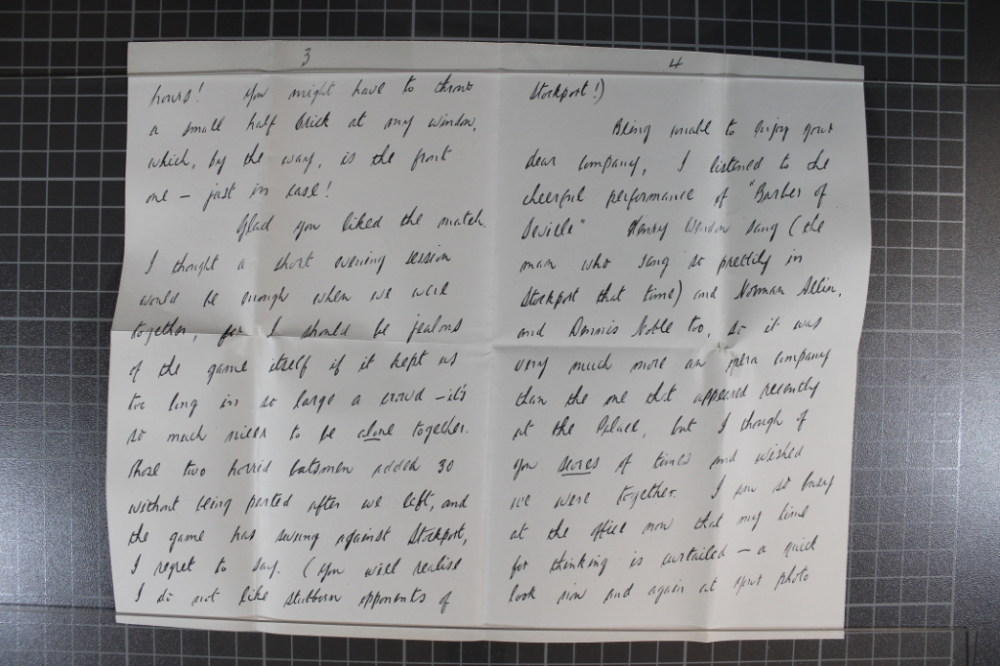 3
hours! You might have to throw
a small half brick at my window,
which, by the way, is the front
one – just in case!
Glad you liked the match.
I thought a short evening session
would be enough when we were
together, for I should be jealous
of the game itself if it kept us
too long in so large a crowd – it's
so much nicer to be alone together.
Those two horrid batsmen added 30
without being parted after we left, and
the game has swung against Stockport,
I regret to say. (You will realise
I do not like stubborn opponents of
4
Stockport!)
Being unable to enjoy your
dear company, I listened to the
cheerful performance of "Barber of
Seville" Henry Wendon sang (the
man who sang so prettily in
Stockport that time) and Norman Allin,
and Dennis Noble too, so it was
very much more an opera company
than the one that appeared recently
at the Palace, but I though of
you scores of times and wished
we were together. I am so busy
at the office now that my time
for thinking is curtailed – a quick
look now and again at your photo